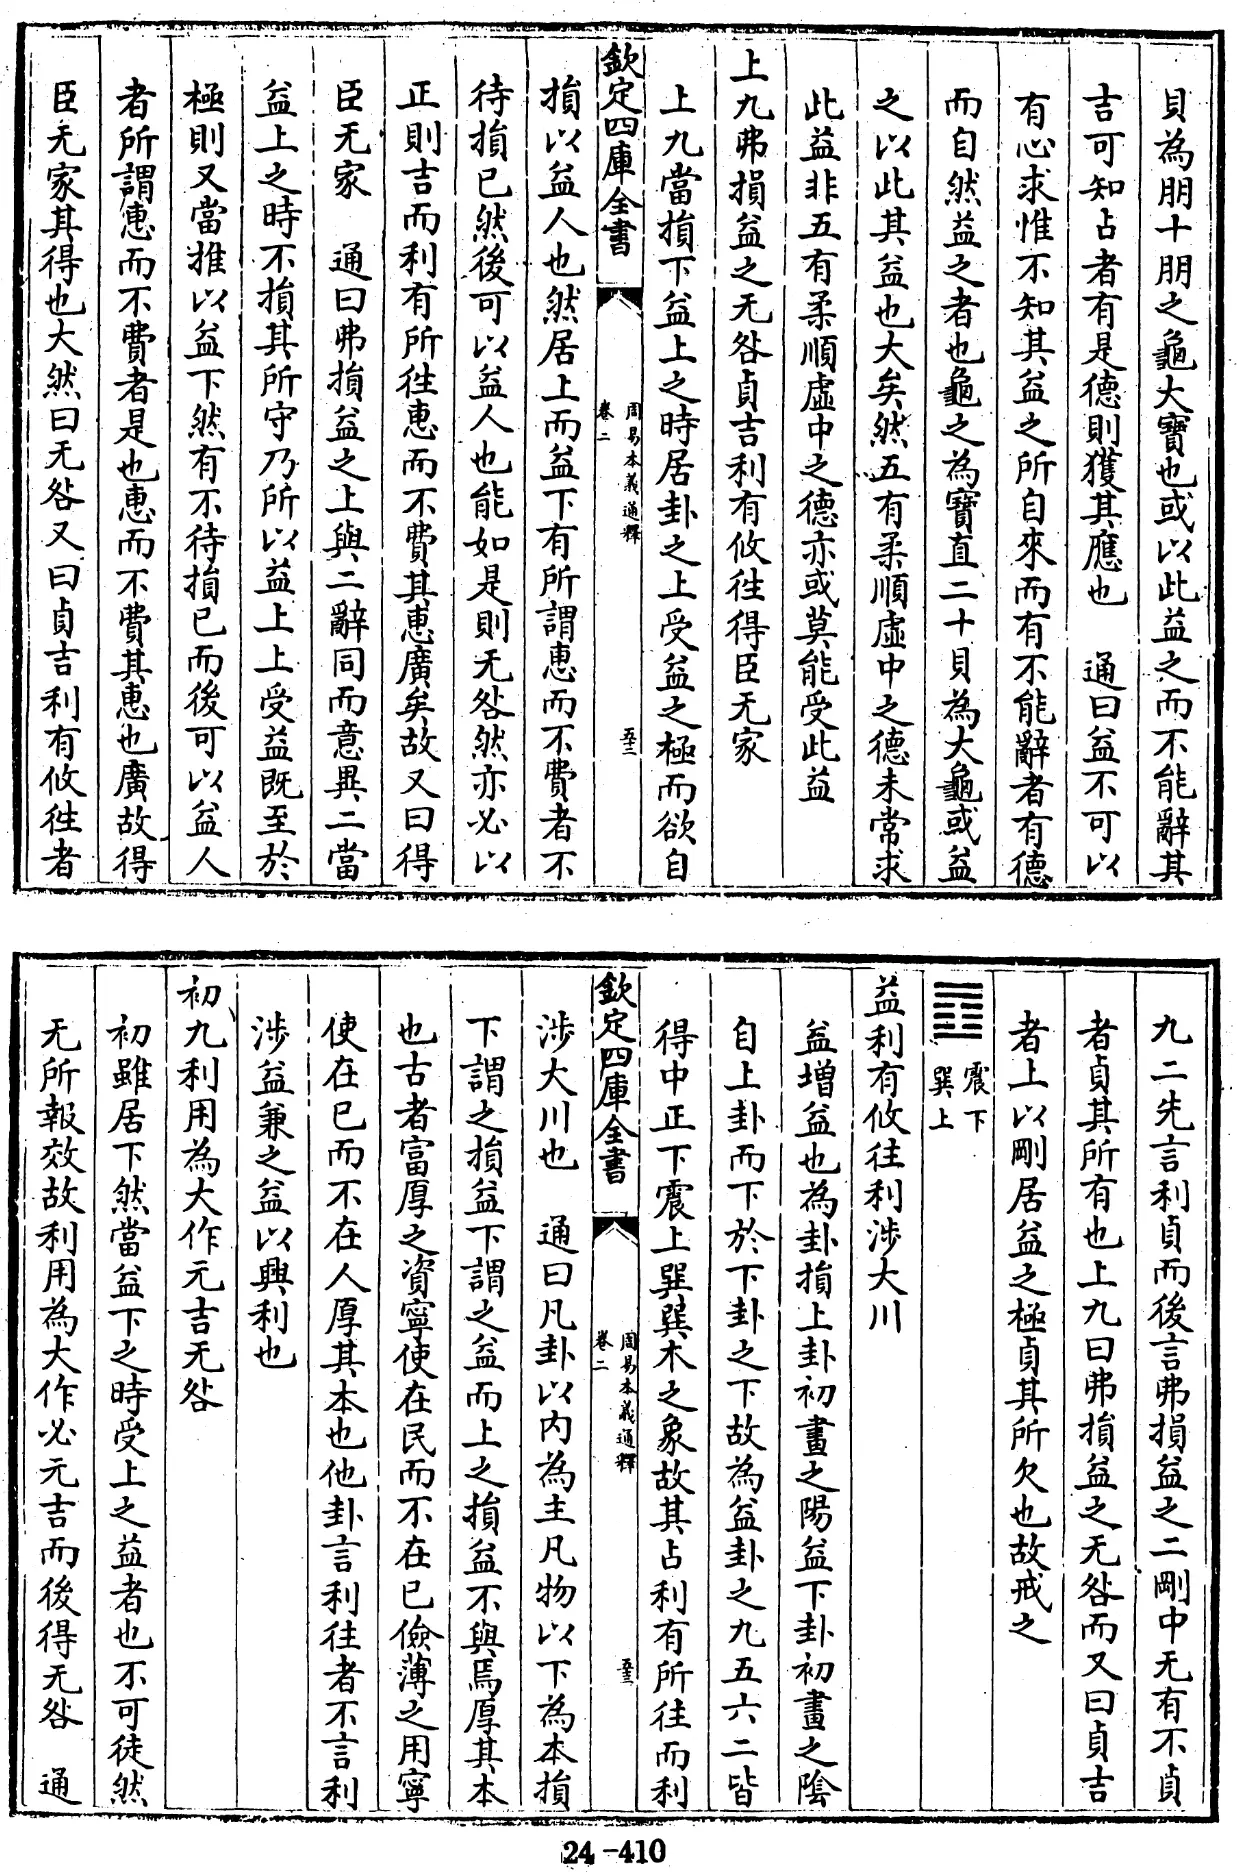 貝為朋十朋之龜大寶也或以此益之而不能辭其
吉可知占者有是德則獲其應也　通曰益不可以
有心求惟不知其益之所自來而有不能辭者有德
而自然益之者也龜之為寶直二十貝為大龜或益
之以此其益也大矣然五有柔順虛中之德未常求
此益非五有柔順虛中之德亦或莫能受此益
上九弗損益之无咎貞吉利有攸往得臣无家
上九當損下益上之時居卦之上受益之極而欲自
欽定四庫全書
周易本義通釋
卷二
五十二
損以益人也然居上而益下有所謂惠而不費者不
待損已然後可以益人也能如是則无咎然亦必以
正則吉而利有所往惠而不費其惠廣矣故又曰得
臣无家　通曰弗損益之上與二辭同而意異二當
益上之時不損其所守乃所以益上上受益既至於
極則又當推以益下然有不待損已而後可以益人
者所謂惠而不費者是也惠而不費其惠也廣故得
臣无家其得也大然曰无咎又曰貞吉利有攸往者
九二先言利貞而後言弗損益之二剛中无有不貞
者貞其所有也上九曰弗損益之无咎而又曰貞吉
者上以剛居益之極貞其所欠也故戒之
䷩
震下
巽上
益利有攸往利涉大川
益增益也為卦損上卦初畫之陽益下卦初畫之陰
自上卦而下於下卦之下故為益卦之九五六二皆
得中正下震上巽巽木之象故其占利有所往而利
欽定四庫全書
周易本義通釋
卷二
五十三
涉大川也　通曰凡卦以内為主凡物以下為本損
下謂之損益下謂之益而上之損益不與焉厚其本
也古者富厚之資寧使在民而不在已儉薄之用寧
使在已而不在人厚其本也他卦言利往者不言利
涉益兼之益以興利也
初九利用為大作元吉无咎
初雖居下然當益下之時受上之益者也不可徒然
无所報效故利用為大作必元吉而後得无咎　通
24-410